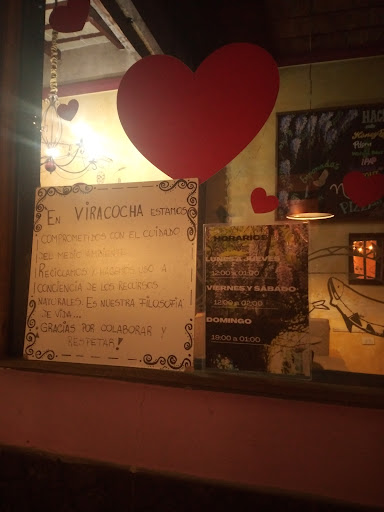 En VIRACOCHA ESTAMOS
COMPROMETIDOS CON EL CUIDADO
DEL MEDIO AMBIENTE.
RECICLAMOS Y HACEMOS USO A
CONCIENCIA DE LOS RECURSOS
NATURALES. ES NUESTRA FILOSOFÍA
DE VIDA...
GRACIAS POR COLABORAR Y
RESPETAR!
HORARIOS
LUNES A JUEVES
12:00 A 01:00
VIERNES Y SÁBADO
12:00 A 02:00
DOMINGO
19:00 A 01:00